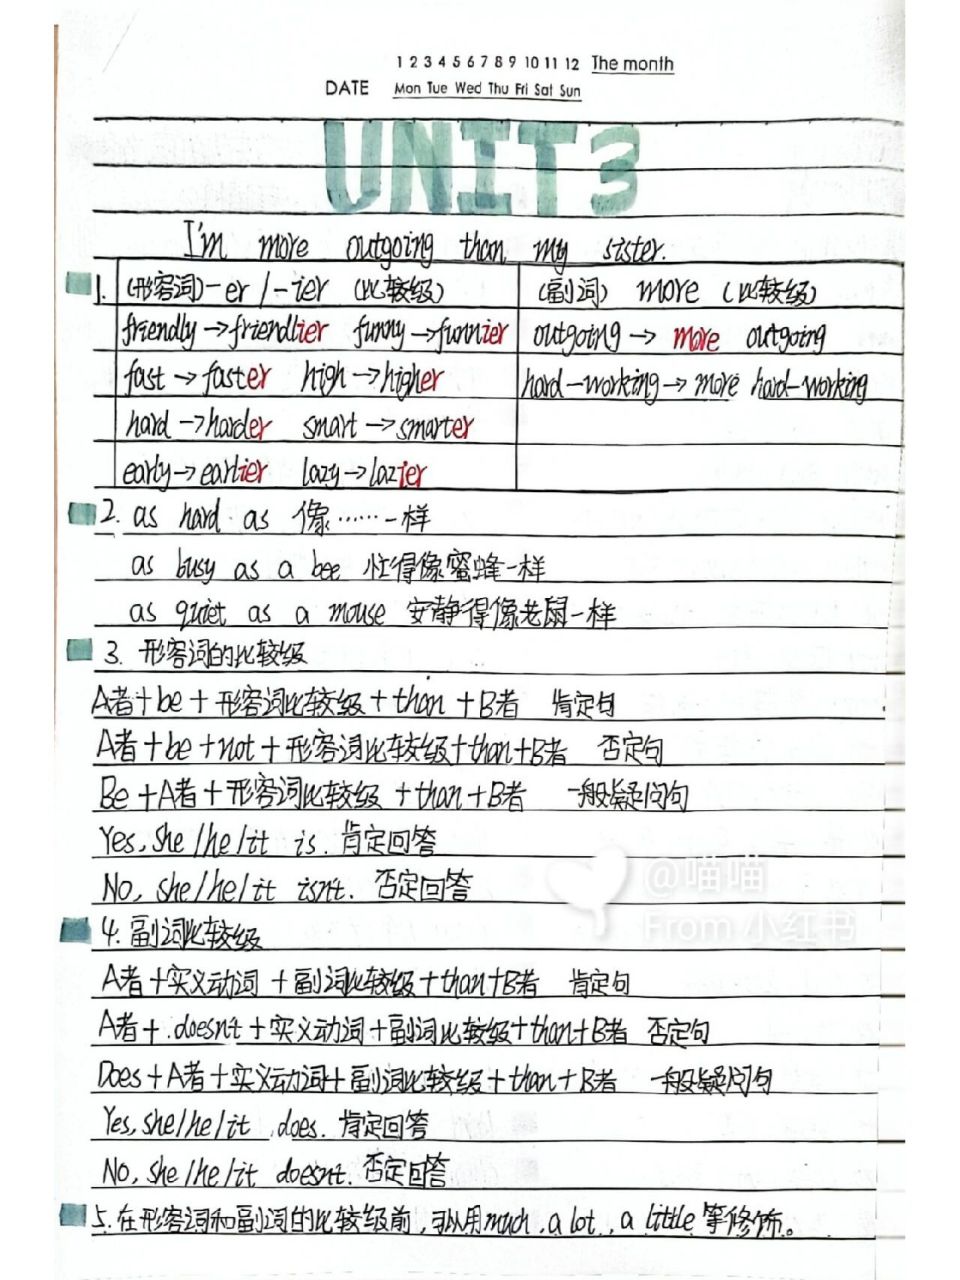 1 2 3 4 5 6 7 8 9 10 11 12 The month
DATE Mon Tue Wed Thu Fri Sat Sun
UNIT3
I'm more outgoing than my sister.
1. (形容词)-er/-ier (比较级) (副词) more (比较级)
friendly→friendlier funny→funnier outgoing→ more outgoing
fast→faster high→higher hard-working→more hard-working
hard→harder smart→smarter
early→earlier lazy→lazier
2. as hard as 像……一样
as busy as a bee 忙得像蜜蜂一样
as quiet as a mouse 安静得像老鼠一样
3. 形容词的比较级
A者+be+形容词比较级+than+B者 肯定句
A者+be+not+形容词比较级+than+B者 否定句
Be+A者+形容词比较级+than+B者 一般疑问句
Yes, she/he/it is. 肯定回答
No, she/he/it isnt. 否定回答
@喵喵
From 小红书
4. 副词比较级
A者+实义动词+副词比较级+than+B者 肯定句
A者+doesnt+实义动词+副词比较级+than+B者 否定句
Does+A者+实义动词+副词比较级+than+B者 一般疑问句
Yes, she/he/it does. 肯定回答
No, she/he/it doesnt. 否定回答
5. 在形容词和副词的比较级前，可以用much, a lot, a little等修饰。